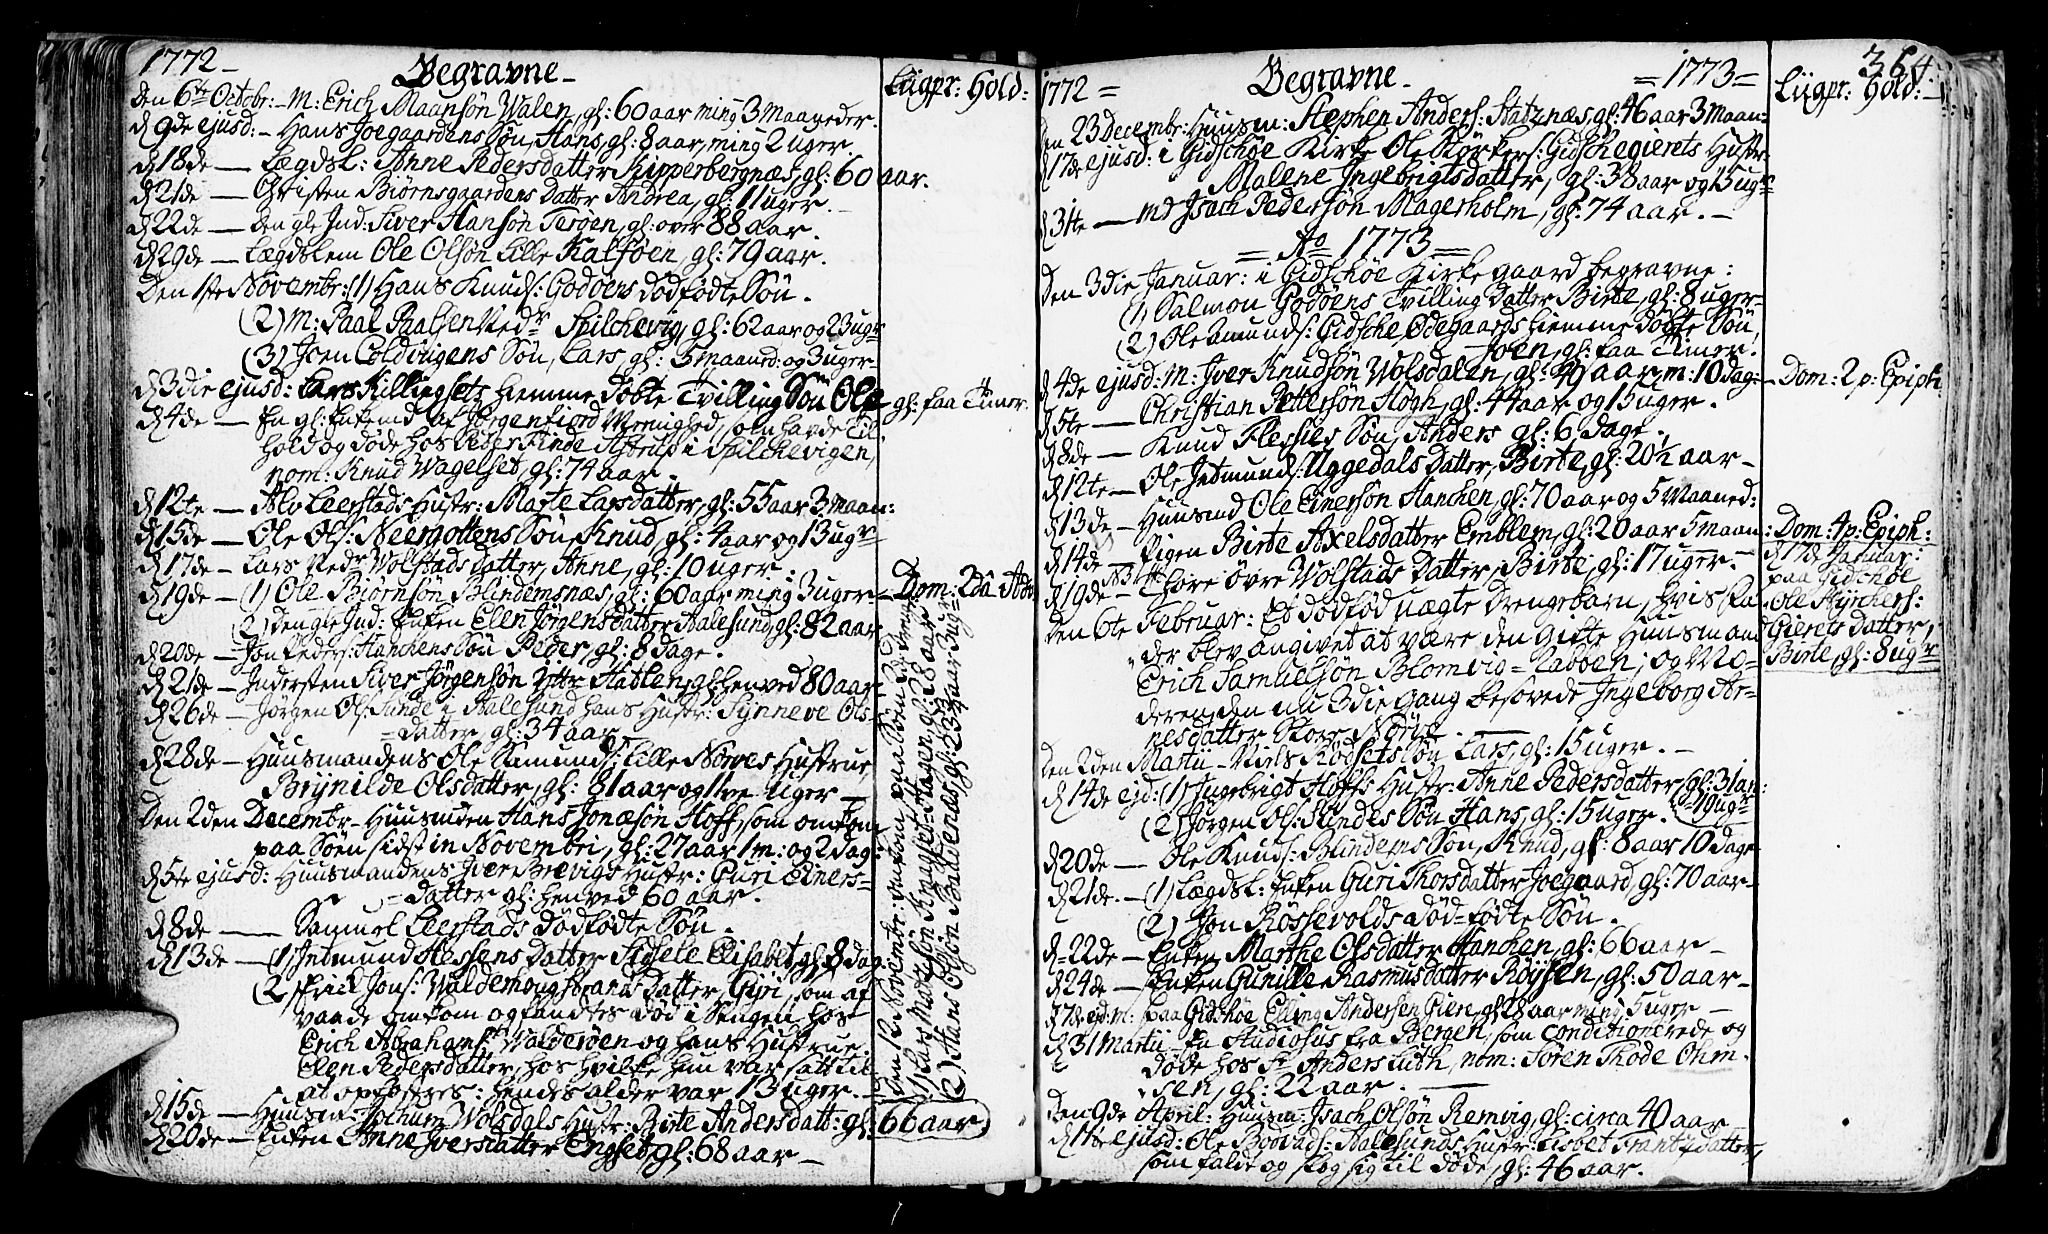 1772
Begravne
Liigpr: Hold:
Den 6te Octobr: M: Erich Maansön Walen, gl: 60 aar ming 3 Maaneder.
d 9de ejusd: Hans Joegaardens Sön, Hans, gl: 8 aar, ming 2 uger.
d 18de Lægdsl: Anne Pedersdatter Kipperbergnæs, gl: 60 aar.
d 21de Christen Biörnsgaardens Datter Andrea, gl: 11 uger.
d 22de den gle Ind: Siver Hansön Teröen, gl: over 88 aar.
d 29de Lægdslem Ole Olsön Lille Kalsöen, gl: 79 aar.
Den 1ste Novembr: (1) Hans Knuds: Godöens dödfödte Sön.
(2) M: Paal Paalsen Spilchevig, gl: 62 aar og 23 ugr
(3) Joen Coldvigens Sön, Lars, gl: 5 maaned: og 3 uger
d 3die ejusd: Lars Killingsets hiemme döbte Tvilling Sön Ole gl: faa Timer.
d 4de En gl: Enkemd af Jörgenfiord Menighed, som havde Til-
hold og döde hos Peder Finde Astrup i Spilchevigen,
nom: Knud Wagelset, gl: 74 aar.
d 12te Alv Leerstads Hustr: Marte Larsdatter, gl: 55 aar 3 maan:
d 15de Ole Ols: Neergottens Sön, Knud gl: 4 aar og 13 ugr
d 17de Lars Wolstads Datter, Anne, gl: 10 uger.
d 19de (1) Ole Biörnsön Blindemsnæs, gl: 60 aar ming 3 uger Dom: 2da Adv
(2) Den gle Ind: Enken Ellen Jörgensdatter Aalesund, gl: 82 aar
d 20de Jon Peders: Hanchens Sön Peder, gl: 8 dage.
d 21de Indersten Siver Jörgensön Ytre Hatlen, gl: henved 80 aar
d 26de Jörgen Ols: Sunde i Aalesund hans Hustr: Synneve Ols-
datter, gl: 34 aar
d 28de Huusmandens Ole Samunds: Lille Nörves Hustrue
Brynilde Olsdatter, gl: 81 aar og 11ve Uger
Den 2den Decembr Huusmden Hans Jonæsön Hoff, som omkom
paa Söen sidst in Novembri, gl: 27 aar 1 m: og 2 dag:
d 5te ejusd: Huusmandens Iver Brevigs Hustr: Guri Elners-
datter gl: henved 60 aar.
d 8de Samuel Leerstads dödfödte Sön.
d 13de (1) Intmund Hessens Datter Fidele Elisabet, gl: 8 dag
(2) Erick Jons: Waldehougstrands Datter, Giri, som af
vaade omkom og fandtes död i Sengen hos
Erich Abrahams: Walderöen og hans Hustrue
Elen Pedersdatter, hos hvilke hun var satt til
at opfostres: hendes alder var 13 uger.
d 15de Huusm: Jochum Wolsdals Hustr: Birte Andersdatt: gl: 66 aar
d 20de Enken Anne Iversdatter Engset gl: 68 aar
Den 12 Novembr: omkom paa Söen
(1) Lars Matsön Knagset-Hagen, gl: 28 aar
(2) Hans Olsön Baldenæs, gl: 23 aar 3 ugr
1772
Begravne
1773
Liigpr: Hold:
364.
Den 23 Decembr: Huusm: Stephen Anders: Hatznæs, gl: 46 aar 3 Maan:
d 17de ejusd: i Gidschöe Kirke Ole Störkers: Gidschegierets Hustr:
Malene Ingebrigtsdatter, gl: 38 aar og 15 ugr
d 31te Md Isach Pedersön Magerholm, gl: 74 aar.
Ao 1773
Den 3die Januar: i Gidschöe Kirke gaard begravne:
(1) Salmon Godöens Tvilling Datter Birte, gl: 8 uger
(2) Ole Amunds: Gidsche Ödegaards hiemme döbte Sön,
Joen, gl: faa Timer.
d 4de ejusd: M: Iver Knudsön Wolsdalen, gl: 49 aar, m: 10 dag: Dom: 2 p: Epiph:
d 5te Christian Pettersön Högh, gl: 44 aar og 15 uger.
d 8de Knud Flesches Sön, Anders gl: 6 dage.
d 12te Ole Intmunds: Uggedals Datter, Birte, gl: 20½ aar
d 13de Huusmd Ole Einersön Hanchen, gl: 70 aar og 5 Maaned:
d 14de Pigen Birte Axelsdatter Emblem, gl: 20 aar 5 maan: Dom: 4 p: Epiph:
d 19de Thore Övre Wolstads Datter, Birte, gl: 17 uger.
d 17de Januar:
paa Gidschöe
Ole Styrchers:
Gierets Datter,
Birte, gl: 8 ugr
Den 6te Februar: Et dödföd uægte Drengebarn, hvis Fa
der blev angivet at være den gifte Huusmand
Erich Samuelsön Blomvig-Laböen; og Mo-
deren, den nu 3die gang besovede Ingeborg Ar-
nesdatter Stor Nörve.
Den 2den Martii Niels Rödsets Sön, Lars, gl: 15 uger.
d 14de ejd: (1) Ingebrigt Hoffs Hustr: Anne Pedersdatter, gl: 31 aa:
19 ugr
(2) Jörgen Ols: Sundes Sön Hans, gl: 15 uger.
d 20de Ole Knuds: Blindems Sön, Knud, gl: 8 aar 10 dage
d 21de (1) Lægdsl: Enken Guri Thorsdatter Joegaard, gl: 70 aar
(2) Jon Rössevolds död-födte Sön.
d 22de Enken Marthe Olsdatter Hanchen, gl: 66 aar
d 24de Enken Gunille Rasmusdatter Röysen, gl: 50 aar
d 7de ejd: m: paa Gidschöe Elling Andersen Giere, gl: 28 aar ming 5 uger
d 31 Martii En Studiosus fra Bergen, som conditionerede og
döde hos Sr Anders Luth, nom: Sören Thode Ohm-
sen, gl: 22 aar.
Den 9de April: Huusm: Isach Olsön Remvig, gl: circa 40 aar
d 11te ejusd: Ole Boevads: Aalesunds Hustr: Lisbet Frantzdatter,
som faldt og slog sig til döde, gl: 46 aar.